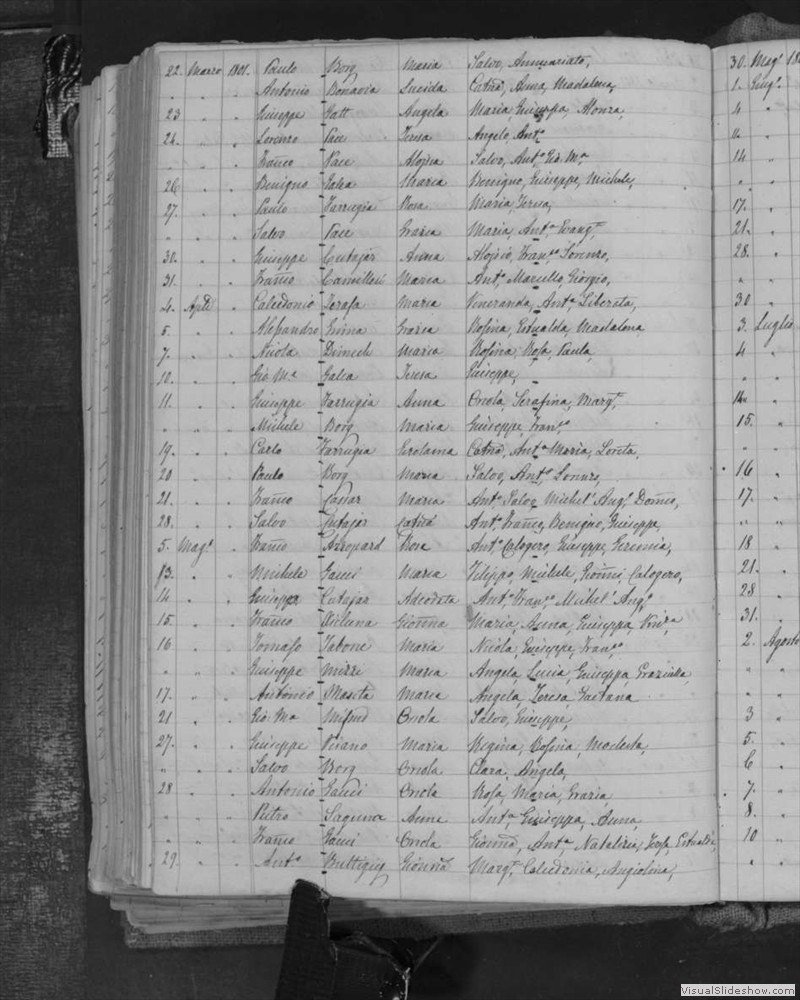 22. Marzo 1801. Paulo Borg Maria Salvo, Annunziata,
" " " Antonio Bonavia Lucida Catna, Anna, Madalena,
23 " " Giuseppe Gatt Angela Maria, Giuseppa, Alonza,
24. " " Lorenzo Pace Teresa Angelo, Anta
" " " Franco Pace Aloisia Salvo, Anto Gio Ma
26. " " Benigno Galea Maria Benigno, Giuseppe, Michele,
27. " " Paulo Farrugia Rosa Maria, Teresa,
" " " Salvo Pace Grazia Maria, Anta Evangta
30. " " Giuseppe Cutajar Anna Aloisio, Franco Lorenzo,
31. " " Franco Camilleri Maria Anto Marcello, Giorgio,
4. Aple " Calcedonio Zerafa Maria Veneranda, Anta Liberata,
5. " " Alessandro Grazia Rosina, Madalena
7. " " Nicola Dimech Maria Rosina, Rosa, Paula,
10. " " Gio Ma Galea Teresa Giuseppe,
11. " " Giuseppe Farrugia Anna Orsola, Serafina, Margta
" " " Michele Borg Maria Giuseppe, Franco
19. " " Carlo Farrugia Gerolama Catna, Anta Maria, Loreta,
20 " " Paulo Borg Maria Salvo, Anto Lorenzo,
21. " " Franco Cassar Maria Anto Salvo, Michele Ango Domco,
28. " " Salvo Cutajar Catna Anto Franco, Benigno, Giuseppe,
5. Maggo " Franco Azzopard Rosa Anto Calogero, Giuseppe,
13. " " Michele Gauci Maria Filippo, Michele, Gionni, Calogero,
14 " " Giuseppe Cutajar Adeodata Anto Franco Michel' Ango
15. " " Franco Gionna Maria, Anna, Giuseppa, Vinca
16 " " Tomaso Tabone Maria Nicola, Giuseppe, Franco
" " " Giuseppe Mizzi Maria Angela, Lucia, Giuseppa, Grazialda,
17. " " Antonio Maria Angela, Teresa, Gaetana
21 " " Gio Ma Mifsud Orsola Salvo, Giuseppe,
27. " " Giuseppe Pisano Maria Regina, Rosina, Modesta,
" " " Salvo Borg Orsola Clara, Angela,
28 " " Antonio Gauci Orsola Rosa, Maria, Grazia
" " " Pietro Laguna Anna Anta Giuseppa, Anna,
" " " Franco Gauci Orsola Gionna, Anta Natalizia, Teresa,
29. " " Anto Buttigieg Gionna Margta Calcedonia, Angiolina,
30. Mago 18
1. Giugo
4 "
" "
14 "
" "
17. "
21. "
28. "
" "
30 "
3. Luglio
4 "
" "
14. "
15. "
" "
16 "
17. "
" "
18 "
21. "
28 "
31. "
2. Agosto
" "
" "
3 "
5. "
6 "
7. "
8. "
10 "
" "
VisualSlideshow.com